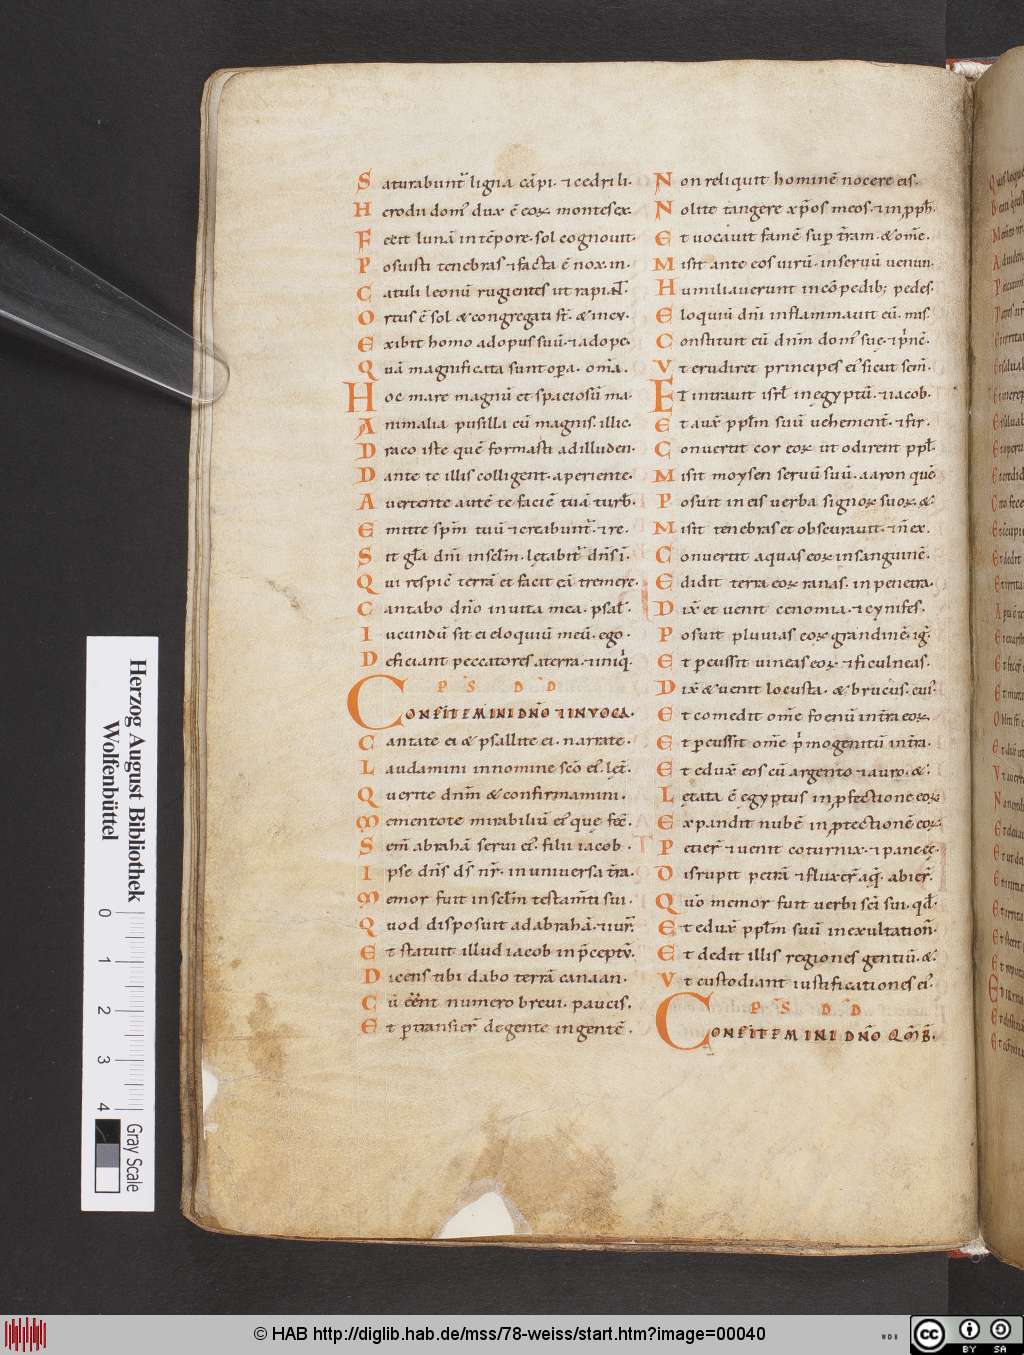 Saturabunt᷑ ligna cāpi. ⁊ cedri li.
Herodii dom᷒ dux ē eoꝝ. montes ex.
Fecit lunā in tēpore. sol cognouit.
Posuisti tenebras ⁊ facta ē nox. in.
Catuli leonū rugientes ut rapiāt.
Ortus ē sol & congregati st̄. & in cv.
Exibit homo ad opus suū. ⁊ ad opc.
Quā magnificata sunt opera. omīa.
Hoc mare magnū et spaciosū ma.
Animalia pusilla cū magnis. illic.
Draco iste quē formasti ad illuden.
Dante te illis colligent. aperiente.
Avertente autē te faciē tuā turb̄.
Emitte sp̄m tuū ⁊ creabunt᷑. ⁊ re.
Sit gl̄a dn̄i in sclm̄. lętabit᷑ dn̄s ī.
Qui respic̄ terrā et facit eā tremere.
Cantabo dn̄o in uita mea. psal̄.
Iucundū sit ei eloquiū meū. ego.
Deficiant peccatores a terra. ⁊ iniq̄.
P S D D
CONFITEMINI DN̄O ⁊ INVOCA.
Cantate ei & psallite ei. narrate.
Laudamini in nomine sc̄o ei᷒. lęt̄.
Querite dn̄m & confirmamini.
Mementote mirabiliū ei᷒ que fec̄.
Sem̄ abrahā serui ei᷒. filii iacob.
Ipse dn̄s ds̄ nr̄. in uniuersa t̄ra.
Memor fuit in sclm̄ testam̄ti sui.
Quod disposuit ad abrahā. ⁊ iur̄.
Et statuit illud iacob in p̄ceptū.
Dicens tibi dabo terrā canaan.
Cū ēēnt numero breui. paucis.
Et ꝑtransier̄ de gente in gentē.
Non reliquit hominē nocere eis.
Nolite tangere xp̄os meos. ⁊ in ꝓph̄.
Et uocauit famē suꝑ t̄ram. & om̄e.
Misit ante eos uirū. in seruū uenun.
Humiliauerunt in cōpedib; pedes.
Eloquiū dn̄i inflammauit eū. mis.
Constituit eū dn̄m dom᷒ suę. ⁊ p̄nc̄.
Vt erudiret principes ei᷒ sicut sem̄.
Et intrauit isrl̄ in egyptū. ⁊ iacob.
Et aux̄ ppl̄m suū uehement̄. ⁊ fir.
Conuertit cor eoꝝ ut odirent ppl̄.
Misit moysen seruū suū. aaron quē
Posuit in eis uerba signoꝝ suoꝝ. &.
Misit tenebras et obscurauit. ⁊ n̄ ex.
Conuertit aquas eoꝝ in sanguinē.
Edidit terra eoꝝ ranas. in penetra.
Dix̄ et uenit cenomia. ⁊ cynifes.
Posuit pluuias eoꝝ grandinē. iḡ.
Et ꝑcussit uineas eoꝝ. ⁊ ficulneas.
Dix̄ & uenit locusta. & brucus. cui᷒.
Et comedit om̄e foenū in t̄ra eoꝝ.
Et ꝑcussit om̄e p̄mogenitū in t̄ra.
Et edux̄ eos cū argento ⁊ auro. &.
Lętata ē egyptus in ꝓfectione eoꝝ
Expandit nubē in ꝓtectionē eoꝝ.
Petier̄ ⁊ uenit coturnix. ⁊ pane cę.
Disrupit petrā ⁊ fluxer̄ aq̄. abier̄.
Quō memor fuit uerbi sc̄i sui. qd̄.
Et edux̄ ppl̄m suū in exultation̄.
Et dedit illis regiones gentiū. &.
Vt custodiant iustificationes ei᷒.
P S D D
CONFITEMINI DN̄O QM̄ B.
Herzog August Bibliothek
Wolfenbüttel
0 1 2 3 4
Gray Scale
© HAB http://diglib.hab.de/mss/78-weiss/start.htm?image=00040
WDB
cc BY SA